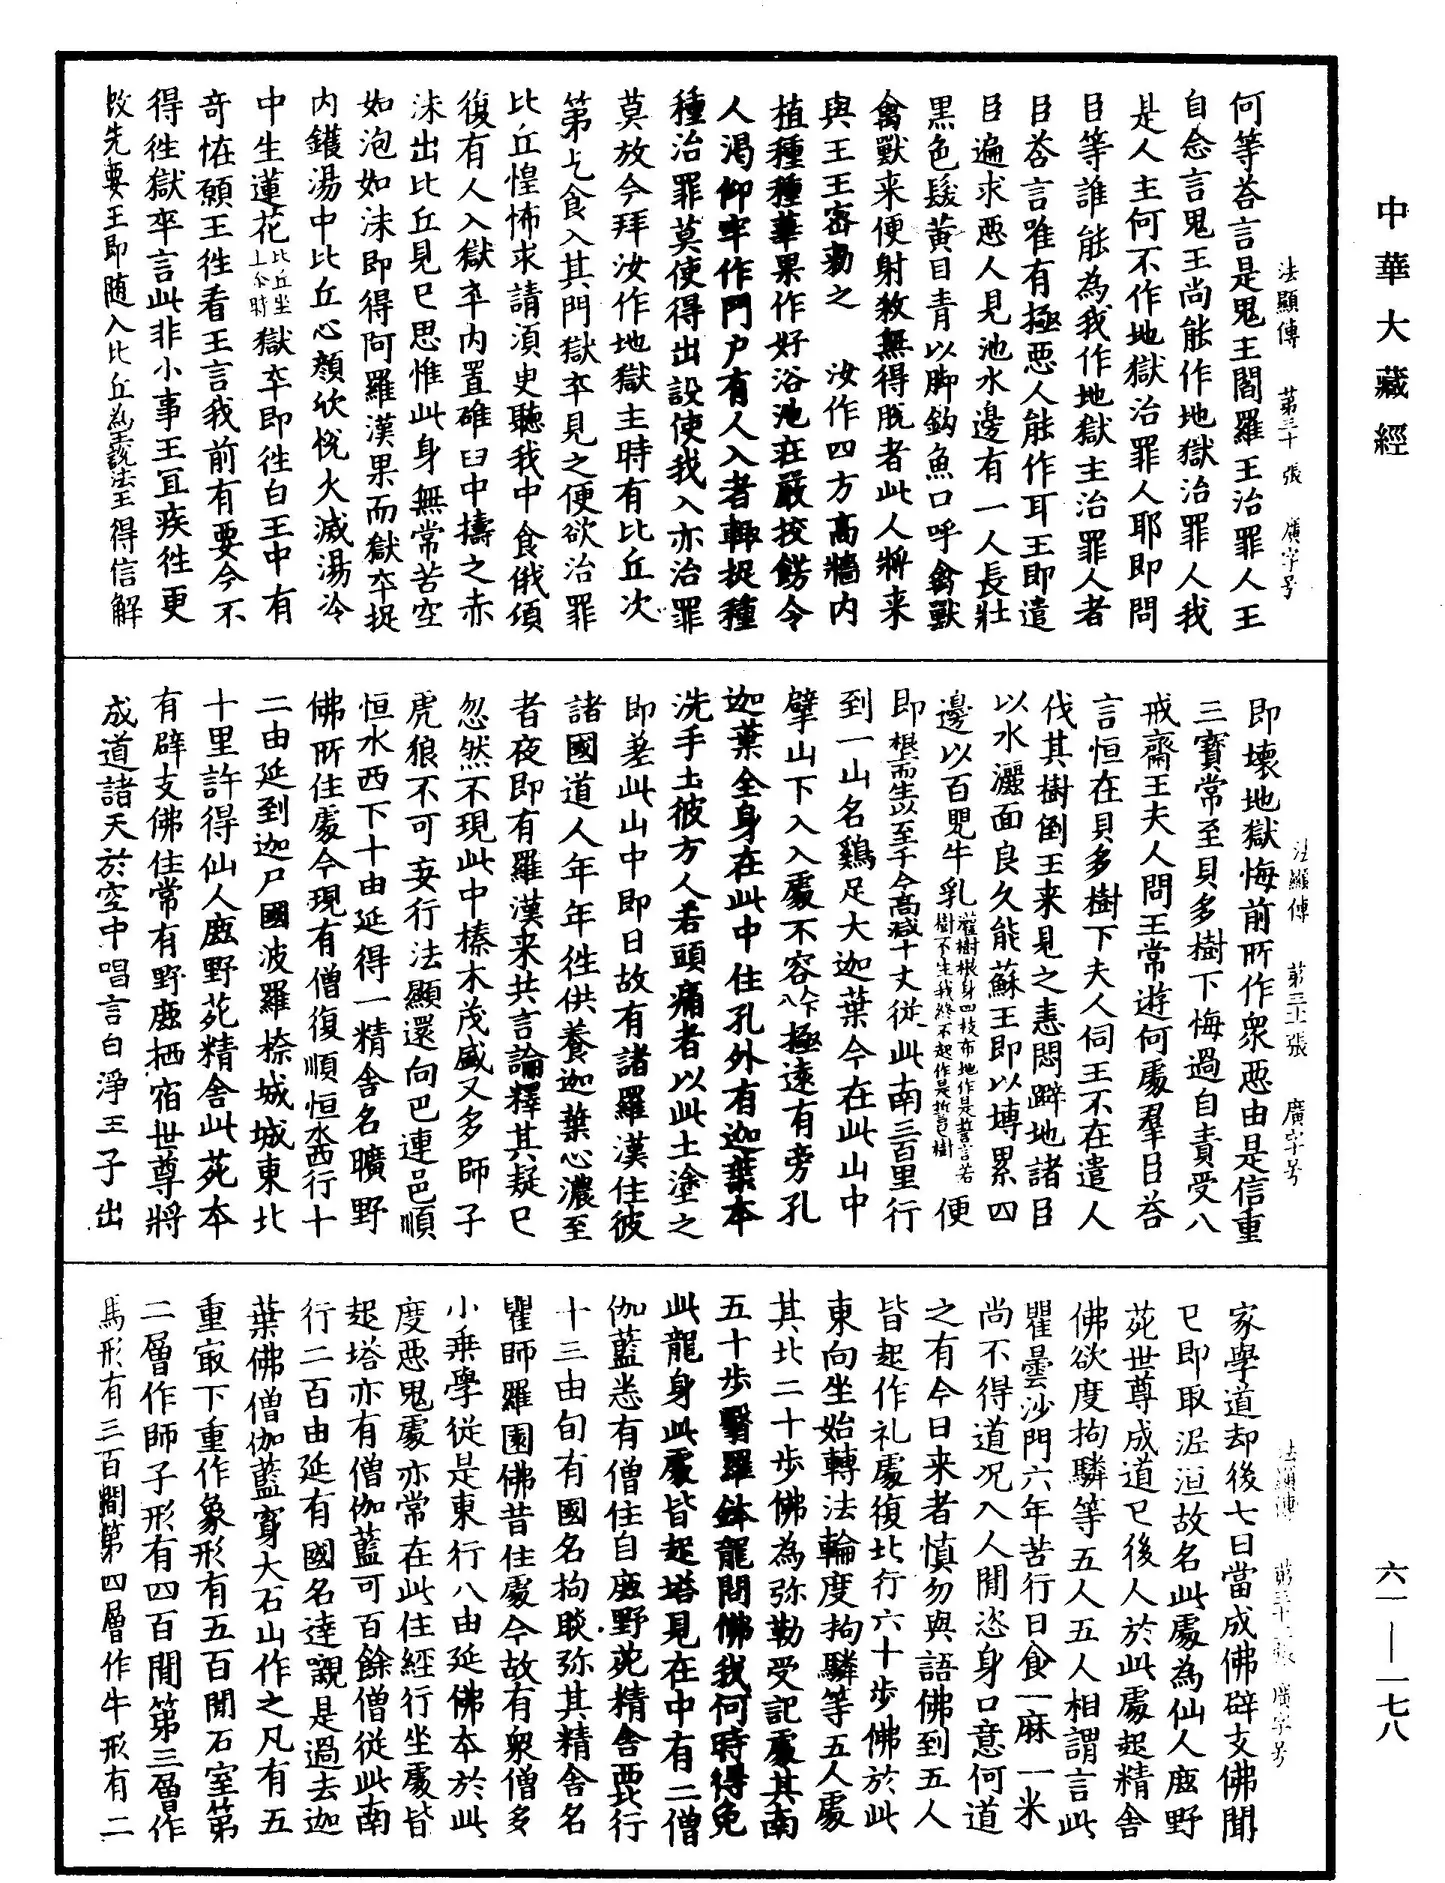 中華大藏經
六一—一七八
法顯傳　第三十張　廣字号
何等荅言是鬼王閻羅王治罪人王
自念言鬼王尚能作地獄治罪人我
是人主何不作地獄治罪人耶即問
臣等誰能為我作地獄主治罪人者
臣荅言唯有極惡人能作耳王即遣
臣遍求惡人見池水邊有一人長壯
黑色髮黃目青以脚鈎魚口呼禽獸
禽獸来便射敘無得脫者此人將来
與王王密勑之　汝作四方高牆内
植種種華果作好浴池莊嚴挍餝令
人渴仰牢作門户有人入者輙捉種
種治罪莫使得出設使我入亦治罪
莫放今拜汝作地獄主時有比丘次
第乞食入其門獄卒見之便欲治罪
比丘惶怖求請湏臾聽我中食俄頃
復有人入獄卒内置碓臼中擣之赤
沫出比丘見已思惟此身無常苦空
如泡如沫即得阿羅漢果而獄卒捉
内鑊湯中比丘心顏欣悅火滅湯冷
中生蓮花比丘坐上尒時獄卒即徃白王中有
奇恠願王徃看王言我前有要今不
得徃獄卒言此非小事王冝疾徃更
敀先要王即随入比丘為王說法王得信解
法顯傳　第三十一張　廣字号
即壞地獄悔前所作衆惡由是信重
三寶常至貝多樹下悔過自責受八
戒齋王夫人問王常遊何處羣臣荅
言恒在貝多樹下夫人伺王不在遣人
伐其樹倒王来見之恚悶躃地諸臣
以水灑面良久能蘇王即以塼累四
邊以百甖牛乳灌樹根身四枝布地作是誓言若樹不生我終不起作是誓已樹便
即根而生以至于今高減十丈從此南三百里行
到一山名鷄足大迦葉今在此山中
擘山下入入處不容人下入極遠有旁孔
迦葉全身在此中住孔外有迦葉本
洗手土彼方人若頭痛者以此土塗之
即差此山中即日故有諸羅漢住彼
諸國道人年年徃供養迦葉心濃至
者夜即有羅漢来共言論釋其疑已
忽然不現此中榛木茂盛又多師子
虎狼不可妄行法顯還向巴連邑順
恒水西下十由延得一精舍名曠野
佛所住處今現有僧復順恒水西行十
二由延到迦尸國波羅㮈城城東北
十里許得仙人鹿野苑精舍此苑本
有辟支佛住常有野鹿栖宿世尊將
成道諸天於空中唱言白淨王子出
法顯傳　第三十二張　廣字号
家學道却後七日當成佛辟支佛聞
已即取泥洹故名此處為仙人鹿野
苑世尊成道已後人於此處起精舍
佛欲度拘驎等五人五人相謂言此
瞿曇沙門六年苦行日食一麻一米
尚不得道况入人間恣身口意何道
之有今日来者慎勿與語佛到五人
皆起作礼處復北行六十步佛於此
東向坐始轉法輪度拘驎等五人處
其北二十步佛為弥勒受記處其南
五十步翳羅鉢龍問佛我何時得免
此龍身此處皆起塔見在中有二僧
伽藍悉有僧住自鹿野苑精舍西北行
十三由旬有國名拘睒弥其精舍名
瞿師羅園佛昔住處今故有衆僧多
小乗學從是東行八由延佛本於此
度惡鬼處亦常在此住經行坐處皆
起塔亦有僧伽藍可百餘僧從此南
行二百由延有國名達嚫是過去迦
葉佛僧伽藍穿大石山作之凡有五
重冣下重作象形有五百間石室第
二層作師子形有四百間第三層作
馬形有三百間第四層作牛形有二